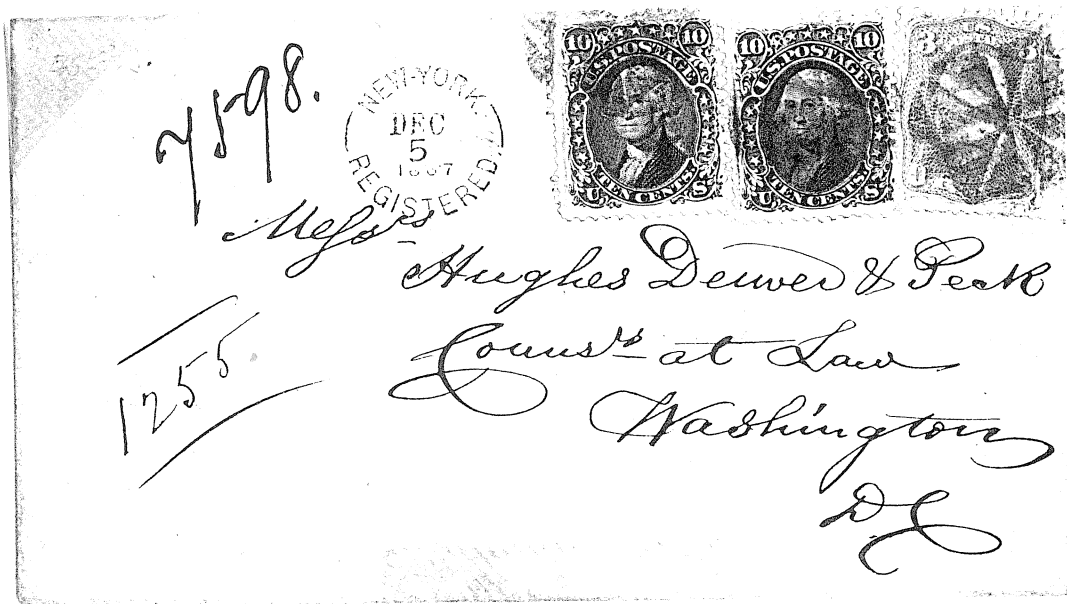 7598.
NEW-YORK.
DEC
5
1867
REGISTERED.
10 10
U.S. POSTAGE
TEN CENTS
U S
10 10
U.S. POSTAGE
TEN CENTS
U S
3 3
U
Messrs
Hughes Denver & Peck
Counsrs at Law
Washington
D C
1255.